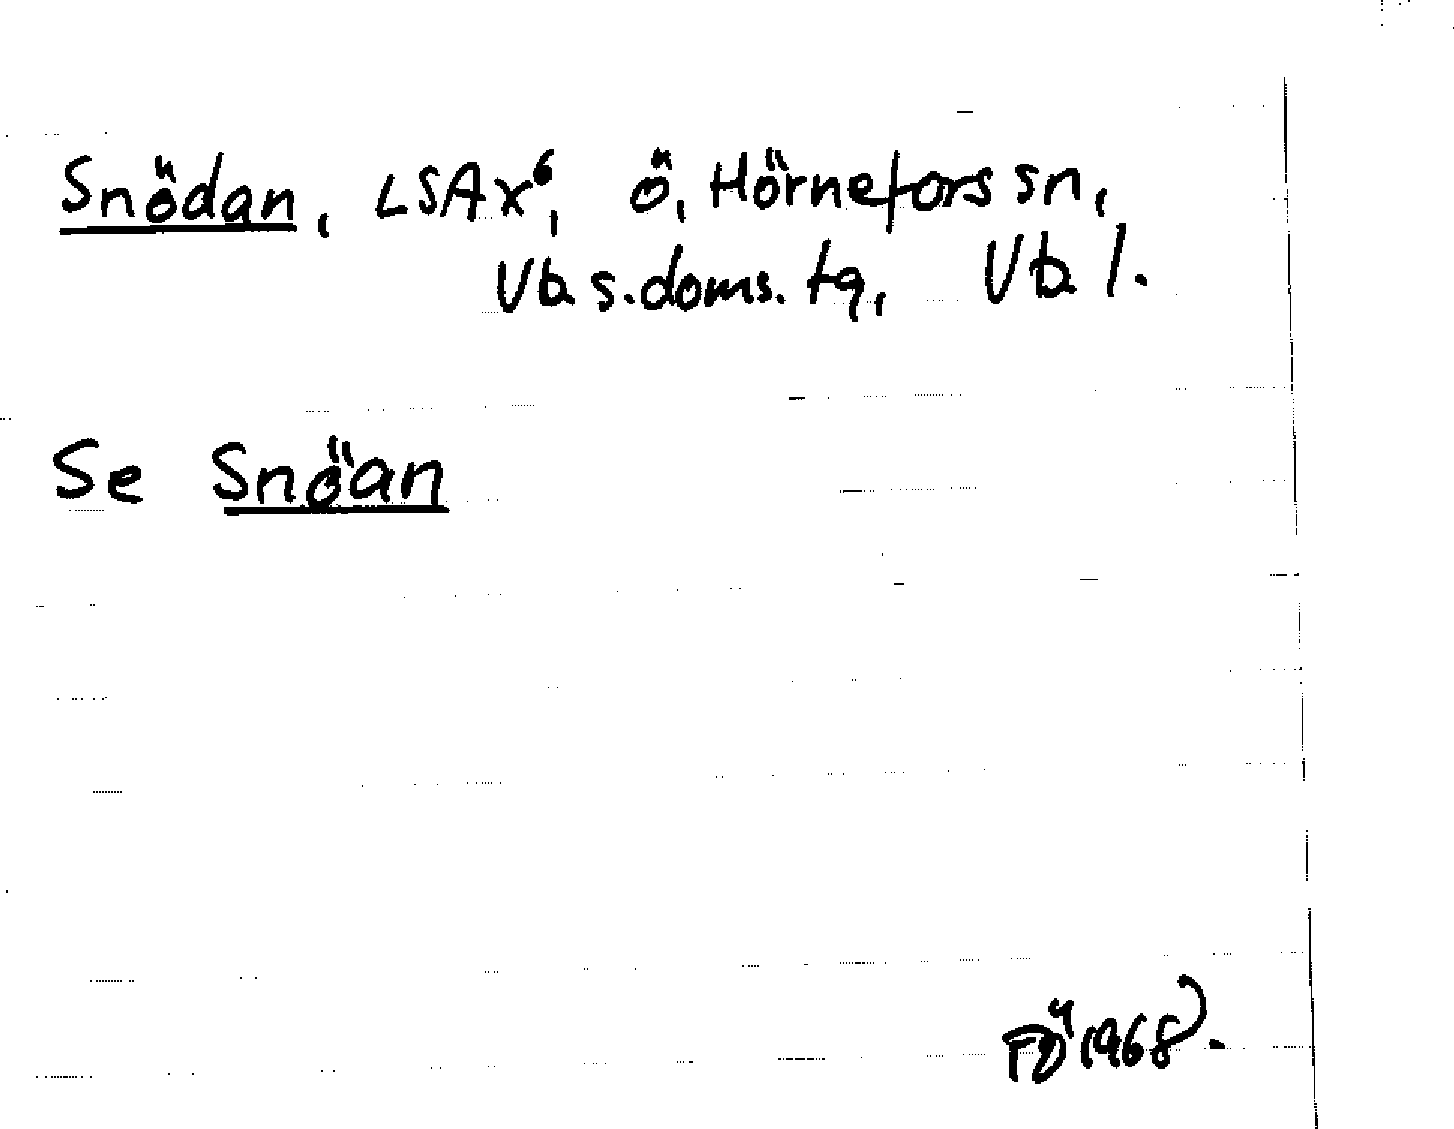 Snödan, LSA x⁶, ö, Hörnefors sn,
Vb. s. doms. tg, Vb l.
Se Snöan
FÖ 1968.